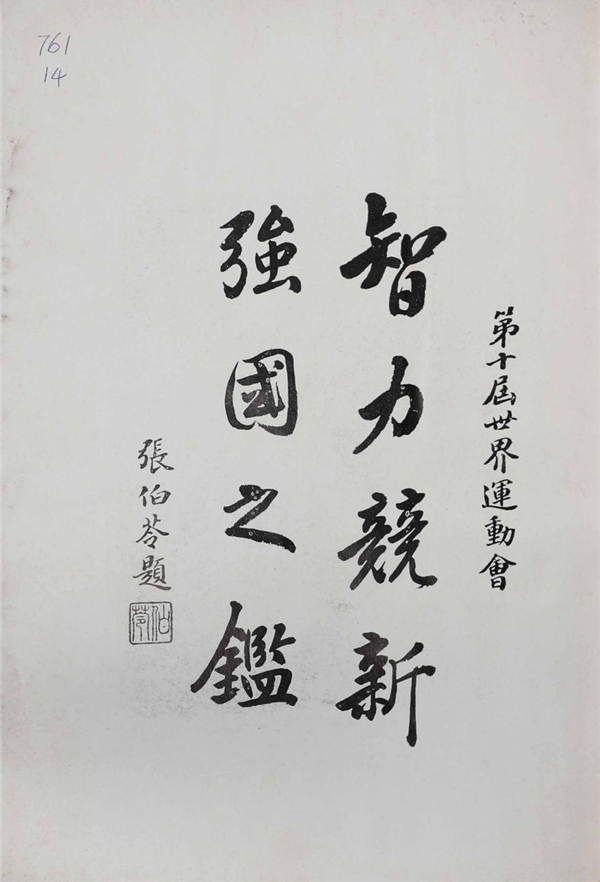 761
14
第十屆世界運動會
智力競新
強國之鑑
張伯苓題
伯苓